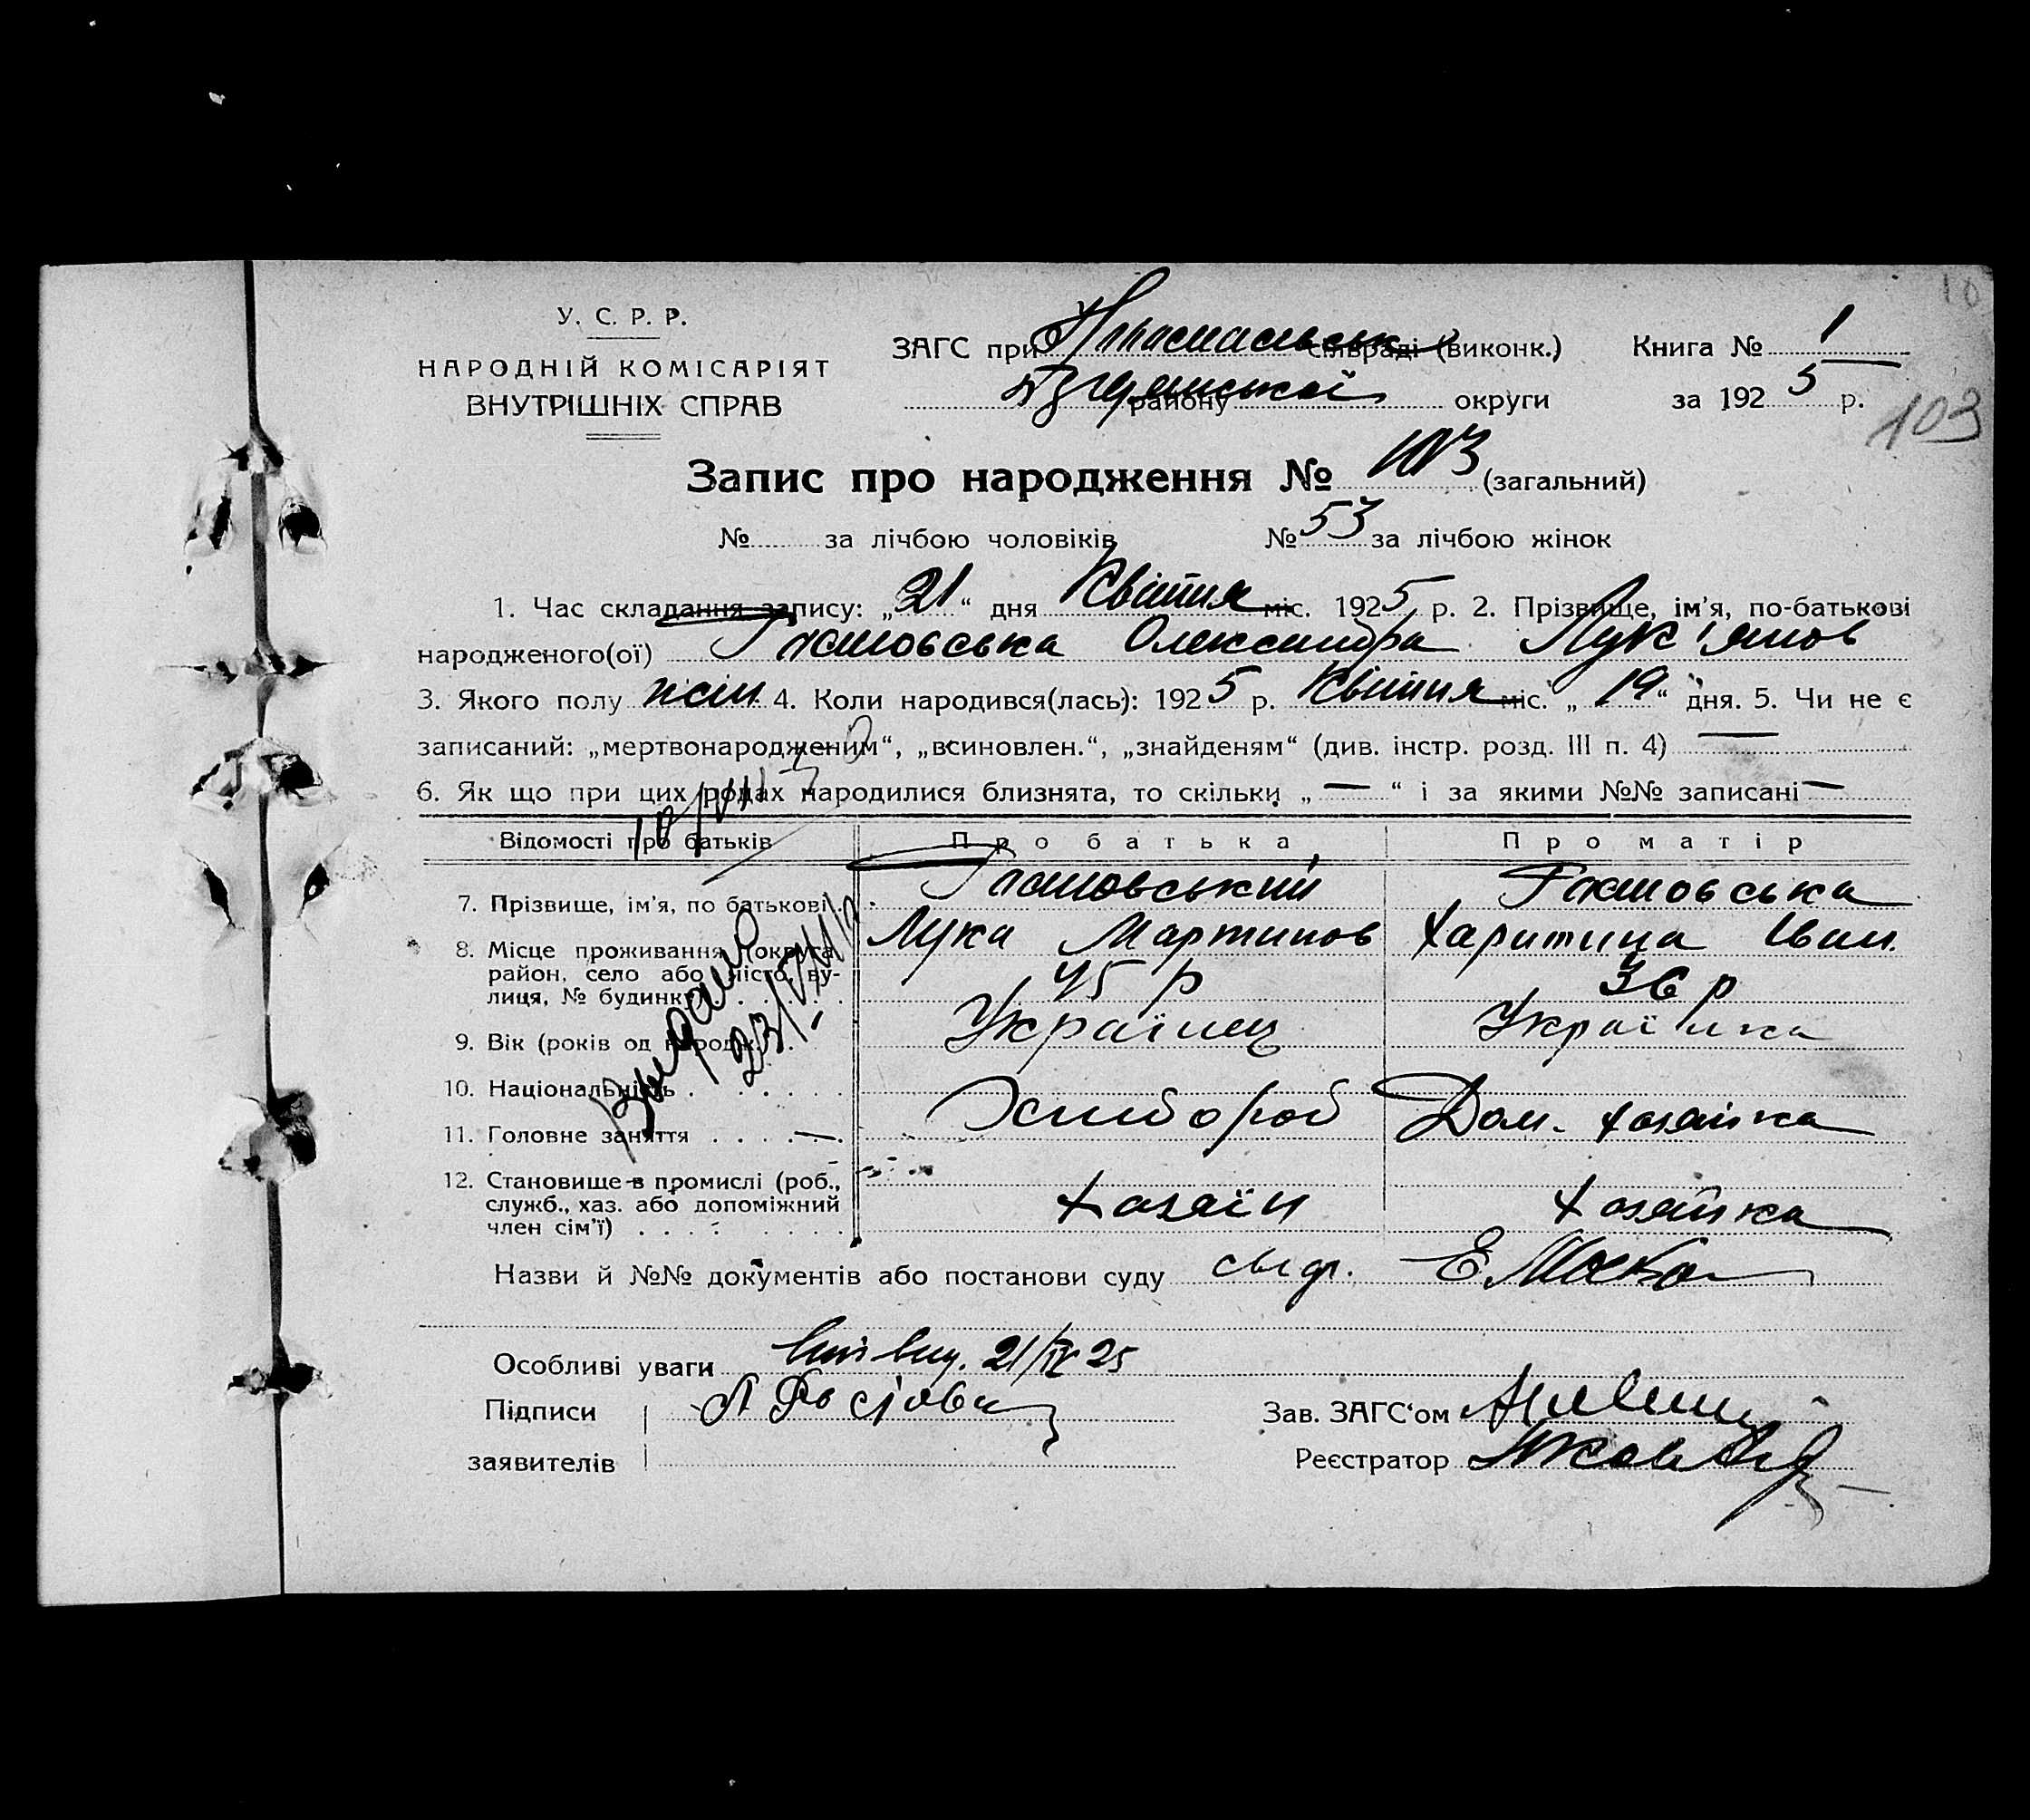 10
У. С. Р. Р.
НАРОДНІЙ КОМІСАРІЯТ
ВНУТРІШНІХ СПРАВ
ЗАГС при співраді (виконк.)
району округи
Книга № 1
за 1925 р.
103
Запис про народження № 103 (загальний)
№ за лічбою чоловіків № 53 за лічбою жінок
1. Час складання запису: „21“ дня Квітня міс. 1925 р. 2. Прізвище, ім’я, по-батькові
народженого(ої) Олександра Лук'янов
3. Якого полу жін. 4. Коли народився(лась): 1925 р. Квітня міс. „19“ дня. 5. Чи не є
записаний: „мертвонародженим“, „всиновлен.“, „знайденям“ (див. інстр. розд. III п. 4) —
6. Як що при цих родах народилися близнята, то скільки „—“ і за якими №№ записані —
Відомості про батьків Про батька Про матір
7. Прізвище, ім’я, по батькові
8. Місце проживання (округа, район, село або місто, вулиця, № будинку) Лука Мартинов Харитина Іван.
9. Вік (років од народж.) 45 р 36 р
10. Національність Українец Українка
11. Головне заняття Хлібороб Дом. хозяйка
12. Становище в промислі (роб., служб., хаз. або допоміжний член сім’ї) хозяїн хозяйка
Назви й №№ документів або постанови суду
Особливі уваги 21/IV 25
Підписи
заявителів
Зав. ЗАГС‘ом
Реєстратор